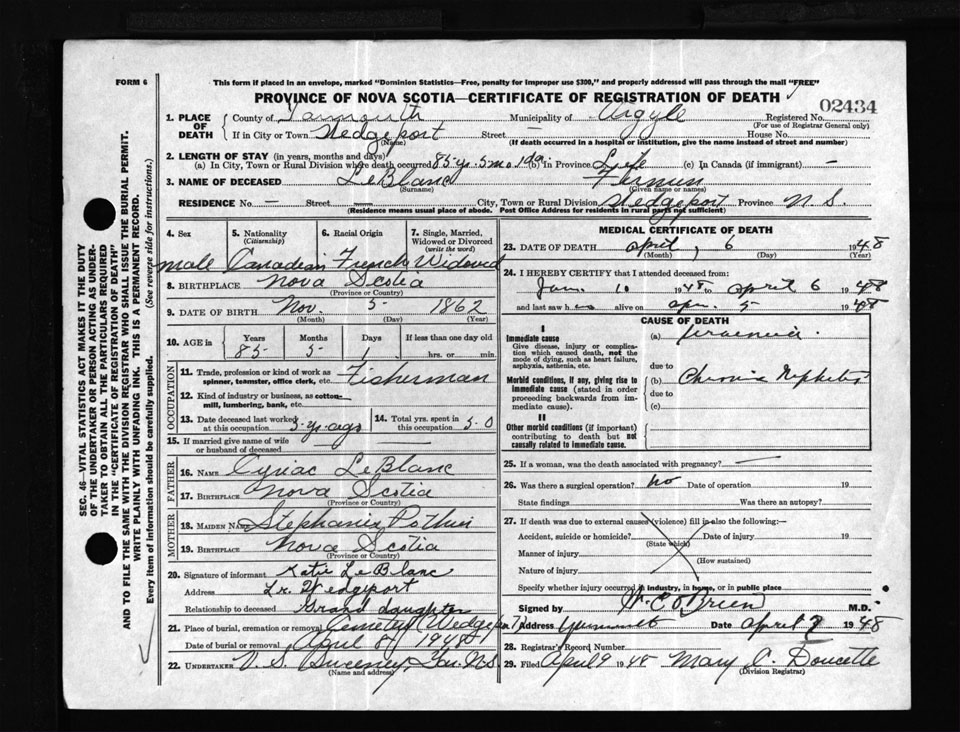 FORM 6
This form if placed in an envelope, marked "Dominion Statistics—Free, penalty for improper use $300," and properly addressed will pass through the mail "FREE"
PROVINCE OF NOVA SCOTIA—CERTIFICATE OF REGISTRATION OF DEATH
02434
1. PLACE OF DEATH County of Yarmouth Municipality of Argyle Registered No.
(For use of Registrar General only)
If in City or Town Wedgeport Street — House No.
(Name) (If death occurred in a hospital or institution, give the name instead of street and number)
2. LENGTH OF STAY (in years, months and days)
(a) In City, Town or Rural Division where death occurred 85 yr. 5 mo. 1 da. (b) In Province Life (c) In Canada (if immigrant) —
3. NAME OF DECEASED LeBlanc
(Surname) (Given name or names)
RESIDENCE No. — Street — City, Town or Rural Division Wedgeport Province N. S.
(Residence means usual place of abode. Post Office Address for residents in rural parts not sufficient)
4. Sex 5. Nationality (Citizenship) 6. Racial Origin 7. Single, Married, Widowed or Divorced (write the word)
male Canadian French Widowed
8. BIRTHPLACE Nova Scotia
(Province or Country)
9. DATE OF BIRTH Nov. 5 1862
(Month) (Day) (Year)
10. AGE in Years Months Days If less than one day old
85 5 1 hrs. or min.
OCCUPATION
11. Trade, profession or kind of work as spinner, teamster, office clerk, etc. Fisherman
12. Kind of industry or business, as cotton-mill, lumbering, bank, etc.
13. Date deceased last worked at this occupation 5 yr. ago 14. Total yrs. spent in this occupation 50
15. If married give name of wife or husband of deceased
FATHER
16. NAME Cyriac LeBlanc
17. BIRTHPLACE Nova Scotia
(Province or Country)
MOTHER
18. MAIDEN NAME Stephanie Pothier
19. BIRTHPLACE Nova Scotia
(Province or Country)
20. Signature of informant Katie LeBlanc
Address Lr. Wedgeport
Relationship to deceased Grand daughter
21. Place of burial, cremation or removal Cemetery (Wedgeport)
Date of burial or removal April 8 1948
22. UNDERTAKER V. S. Sweeney, Yar. N.S.
(Name and address)
MEDICAL CERTIFICATE OF DEATH
23. DATE OF DEATH April, 6 1948
(Month) (Day) (Year)
24. I HEREBY CERTIFY that I attended deceased from:
Jan. 10 1948 to April 6 1948
and last saw h alive on Apr. 5 1948
CAUSE OF DEATH
I
Immediate cause (a) Uraemia
Give disease, injury or complication which caused death, not the mode of dying, such as heart failure, asphyxia, asthenia, etc.
due to
Morbid conditions, if any, giving rise to immediate cause (stated in order proceeding backwards from immediate cause).
(b) Chronic Nephritis
due to
(c)
II
Other morbid conditions (if important) contributing to death but not causally related to immediate cause.
25. If a woman, was the death associated with pregnancy? —
26. Was there a surgical operation? No Date of operation 19
State findings Was there an autopsy?
27. If death was due to external causes (violence) fill in also the following:—
Accident, suicide or homicide? Date of injury 19
(State which)
Manner of injury
(How sustained)
Nature of injury
Specify whether injury occurred in industry, in home, or in public place
Signed by O'Brien M.D.
Address Yarmouth Date April 7 1948
28. Registrar's Record Number
29. Filed April 9 1948 Mary C. Doucette
(Division Registrar)
SEC. 46—VITAL STATISTICS ACT MAKES IT THE DUTY OF THE UNDERTAKER OR PERSON ACTING AS UNDERTAKER TO OBTAIN ALL THE PARTICULARS REQUIRED IN THE "CERTIFICATE OF REGISTRATION OF DEATH" AND TO FILE THE SAME WITH THE DIVISION REGISTRAR WHO SHALL ISSUE THE BURIAL PERMIT.
WRITE PLAINLY WITH UNFADING INK. THIS IS A PERMANENT RECORD.
Every item of information should be carefully supplied. (See reverse side for instructions.)